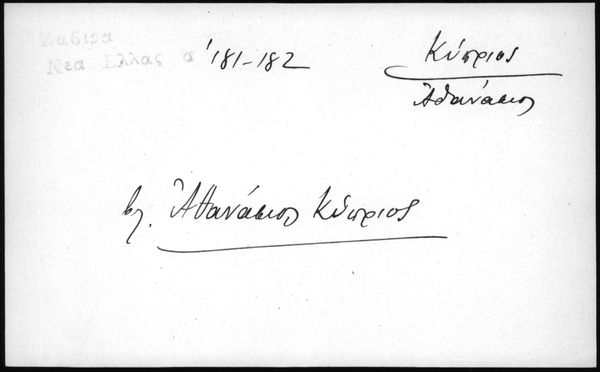 Ζαβιρα
Νεα Ελλας σ 181-182
Κύπριος
Ἀθανάσιος
βλ. Ἀθανάσιος Κύπριος